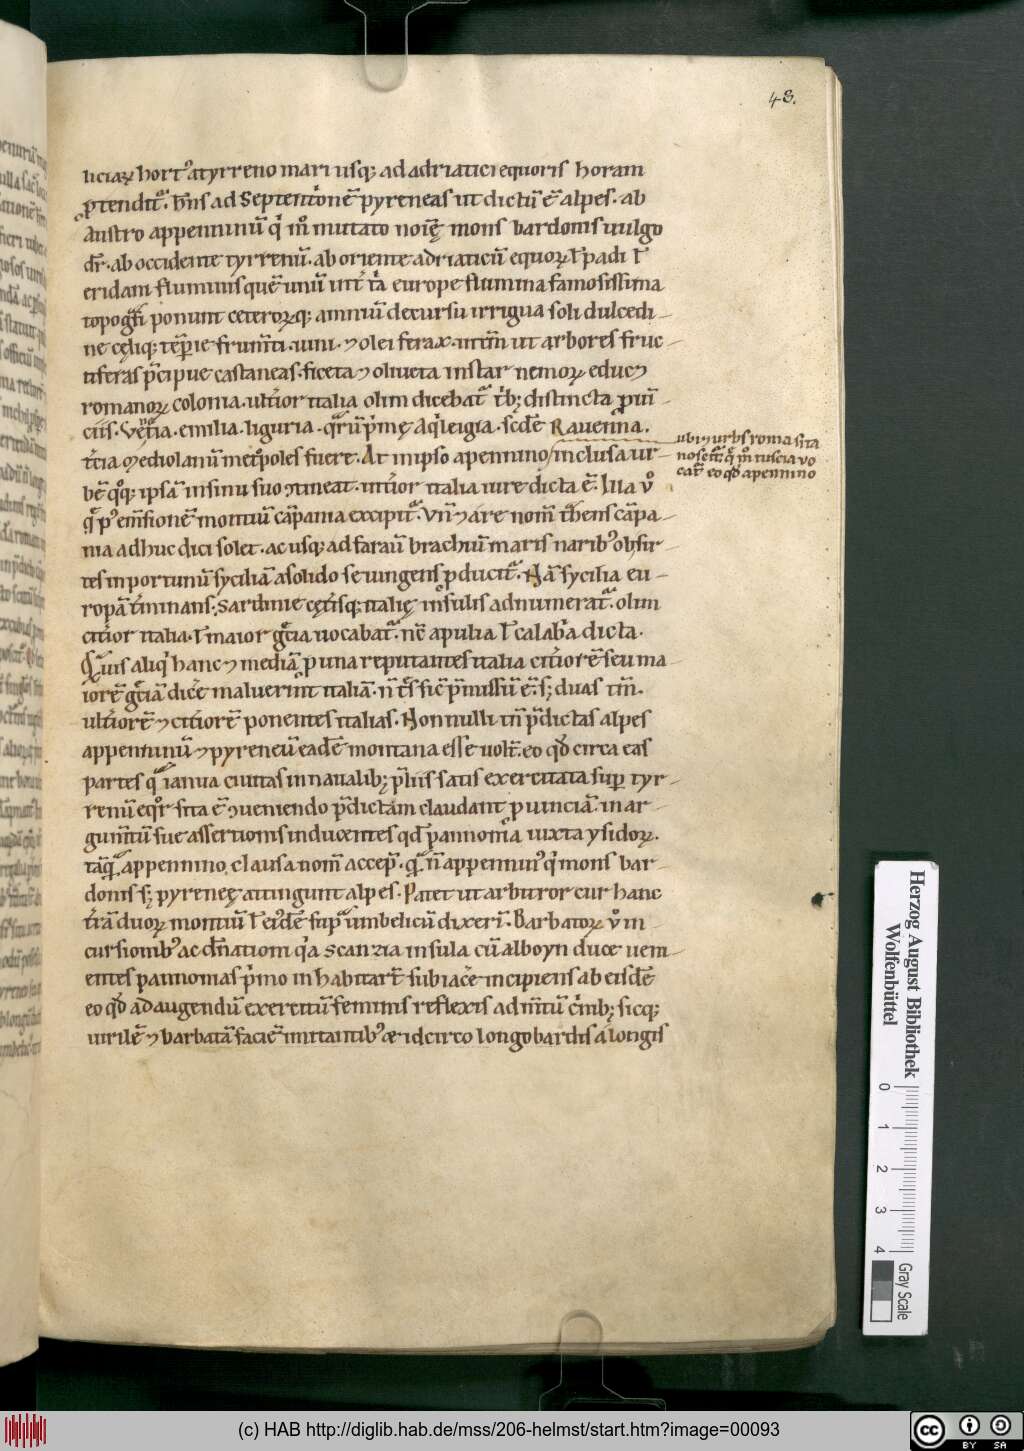 43.
liciaꝝ hortꝰ a tyrreno mari usqꝫ ad adriatici equoris horam
ꝓtendit᷑. hn̄s ad Septentrionē pyreneas ut dictū ē alpes. ab
Austro appenninū q̇ m̊ mutato noīe mons bardonis uulgo
dr̄. ab occidente tyrrenū. ab oriente adriaticū equoꝝ ł padi ł
eridani fluminis quē unū int̄ t̄a europe flumina famosissima
topogͣfi ponunt ceteroꝝqꝫ amniū decursu irrigua soli dulcedi-
ne cęliqꝫ tēperie frum̄ti. uini. ⁊ olei ferax. intm̄ ut arbores fruc-
tiferas p̄cipue castaneas. ficeta ⁊ oliueta instar nemoꝝ educꝫ
romanoꝝ colonia. ulterior italia olim dicebat᷑ trib; distincta ꝓuin-
ciis. Venetia. emilia. liguria. quarū prima Aqͥleigia. scdē Rauenna.
tcia Mediolanū metropoles fuere. At in ipso apennino inclusa ur-
ubi ⁊ urbs roma sita
noscit᷑ q̄ m̊ tuscia uo
cat᷑ eo qd̄ apennino
bē qͦqꝫ ipsā in sinu suo ɔtineat. interior italia iure dicta ē. Illa ů
q̄ pꝰ emensionē montiū cāpania excipit᷑. Vn̄ ⁊ a re nom̄ trahens cāpa-
nia adhuc dici solet. ac usqꝫ ad faraū brachiū maris naribꝰ obsis-
tes inportunū syciliā a solido seiungens ꝓducit᷑. Nā sycilia eu-
ropā terminans. Sardinie cęterisqꝫ italię insulis adnumerat᷑. olim
citerior italia. ł maior grecia uocabat᷑. nc̄ apulia ł calabria dicta.
Quāuis aliqͥ hanc ⁊ mediā ꝓ una reputantes italia citeriorē seu ma
iorē greciā dicere maluerint italiā. n̄ t̄s sic p̄missū ē. s; duas tm̄.
ulteriorē ⁊ citeriorē ponentes italias. Nonnulli tn̄ p̄dictas alpes
appenninū ⁊ pyreneū eadē montana esse uolt̄. eo qd̄ circa eas
partes qua ianua ciuitas in naualib; p̄liis satis exercitata sup tyr-
renū equor sita ē ɔueniendo p̄dictam claudant ꝓuinciā. in ar-
gumentū sue assertionis inducentes qd̄ pannonia iuxta ysidoꝝ.
tāqͣ appennino clausa nom̄ accep̄. quā n̄ appenninꝰ qͥ mons bar-
donis s; pyreneę attingunt alpes. Patet ut arbitror cur hanc
terrā duoꝝ montiū ł eiꝰdē supra umbelicū dixerim. Barbaroꝝ ů in
cursionibꝰ ac dn̄ationi qͥa scanzia insula cū alboyn duce ueni-
entes pannonias p̄mo inhabitar̄t subiacere incipiens ab eisdē
eo qd̄ ad augendū exercitū feminis reflexis ad mentū crinib; sicqꝫ
uirilē ⁊ barbatā faciē imitantibꝰ ⁊ idcirco longobardis a longis
Herzog August Bibliothek
Wolfenbüttel
0 1 2 3 4
Gray Scale
(c) HAB http://diglib.hab.de/mss/206-helmst/start.htm?image=00093
cc BY SA